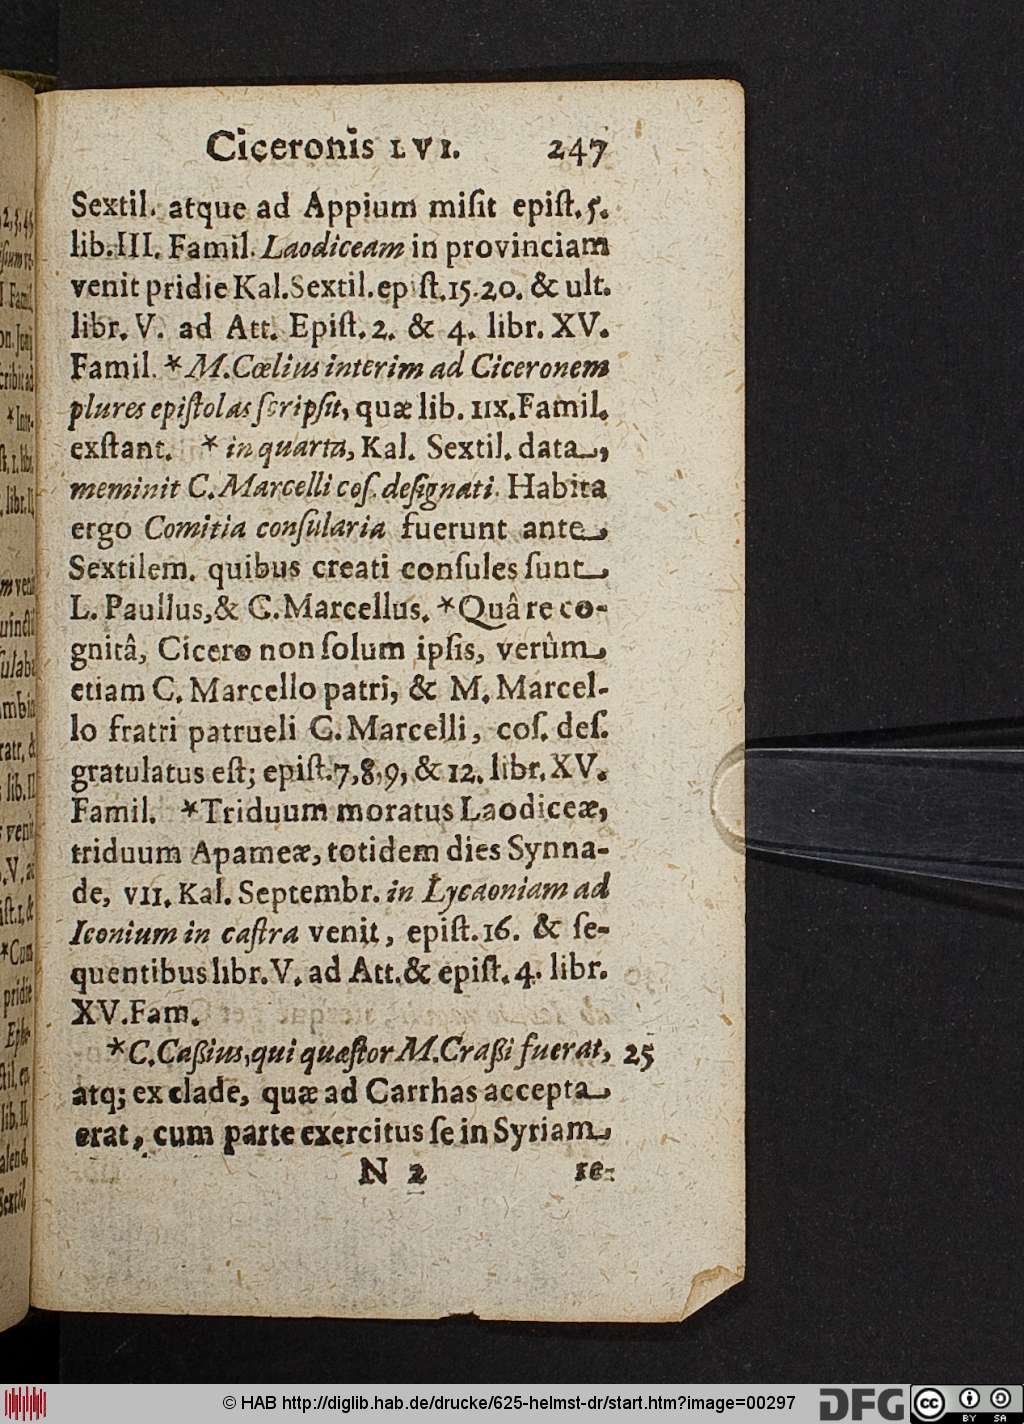 Ciceronis LVI. 247
Sextil. atque ad Appium miſit epiſt. 5.
lib. III. Famil. Laodiceam in provinciam
venit pridie Kal. Sextil. epiſt. 15. 20. & ult.
libr. V. ad Att. Epiſt. 2. & 4. libr. XV.
Famil. * M. Cœlius interim ad Ciceronem
plures epiſtolas ſcripſit, quæ lib. IIX. Famil.
exſtant. * in quarta, Kal. Sextil. data,
meminit C. Marcelli coſ. deſignati. Habita
ergo Comitia conſularia fuerunt ante
Sextilem. quibus creati conſules ſunt
L. Paullus, & C. Marcellus. * Quâ re co-
gnitâ, Cicero non ſolum ipſis, verùm
etiam C. Marcello patri, & M. Marcel-
lo fratri patrueli C. Marcelli, coſ. deſ.
gratulatus eſt; epiſt. 7, 8, 9, & 12. libr. XV.
Famil. * Triduum moratus Laodiceæ,
triduum Apameæ, totidem dies Synna-
de, VII. Kal. Septembr. in Lycaoniam ad
Iconium in caſtra venit, epiſt. 16. & ſe-
quentibus libr. V. ad Att. & epiſt. 4. libr.
XV. Fam.
* C. Caßius, qui quæſtor M. Craßi fuerat, 25
atq; ex clade, quæ ad Carrhas accepta
erat, cum parte exercitus ſe in Syriam
N 2 re-
© HAB http://diglib.hab.de/drucke/625-helmst-dr/start.htm?image=00297
DFG
cc BY SA